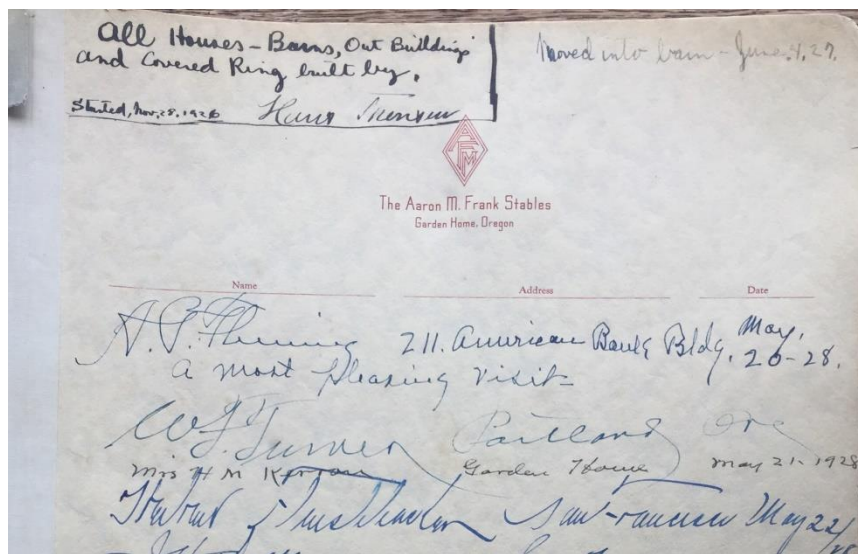 All Houses - Barns, Out Buildings
and Covered Ring built by,
Started, Nov. 28, 1926 Hans
Moved into barn - June, 4, 27.
AMFM
The Aaron M. Frank Stables
Garden Home, Oregon
Name Address Date
A. P. Fleming 211. American Bank Bldg. May, 20-28.
a most pleasing visit
W. J. Turner Portland Ore
Mrs H M Garden Home May 21-1928
San Francisco May 22/